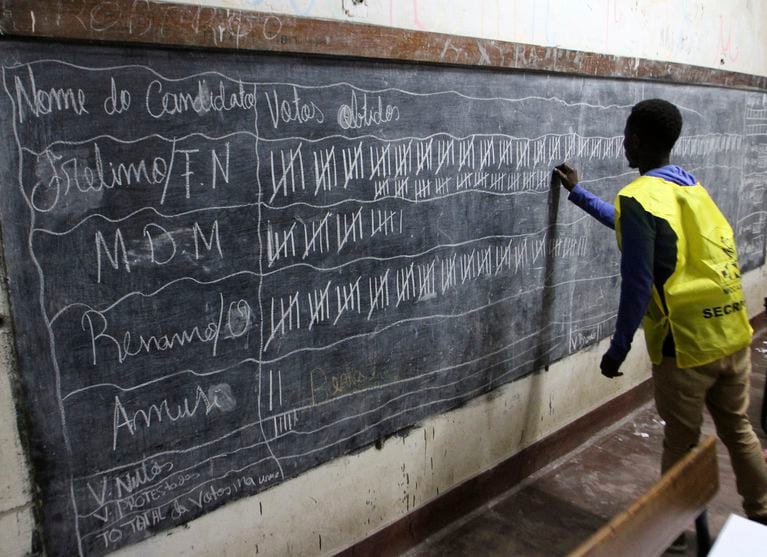 Nome do Candidato Votos obtidos
Frelimo/F.N
M.D.M
Renamo/O
Amusi
V. Nulos
V. PROTEStados
TOTAL da Votos
SECR